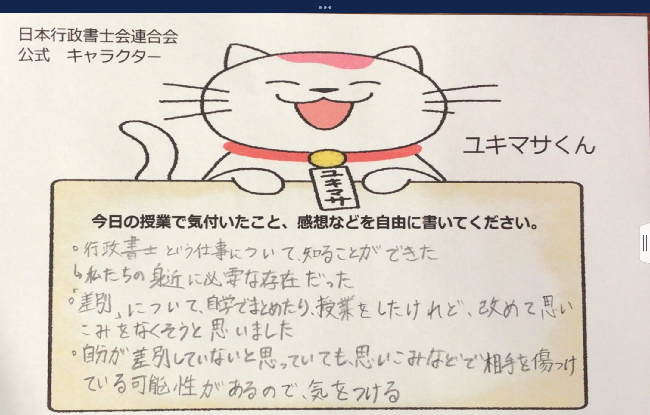 日本行政書士会連合会
公式 キャラクター
ユキマサくん
ユキマサ
今日の授業で気付いたこと、感想などを自由に書いてください。
。行政書士という仕事について、知ることができた
↳私たちの身近に必要な存在だった
。「差別」について、自学でまとめたり、授業をしたけれど、改めて思い
こみをなくそうと思いました
。自分が差別していないと思っていても、思いこみなどで相手を傷つけ
ている可能性があるので、気をつける